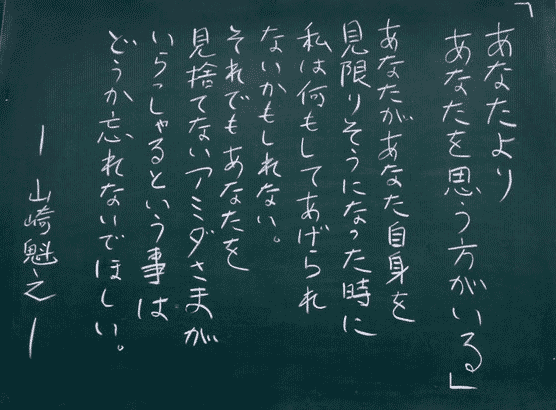 「あなたより
あなたを思う方がいる」
あなたがあなた自身を
見限りそうになった時に
私は何もしてあげられ
ないかもしれない。
それでもあなたを
見捨てないアミダさまが
いらっしゃるという事は
どうか忘れないでほしい。
― 山崎魁之 ―